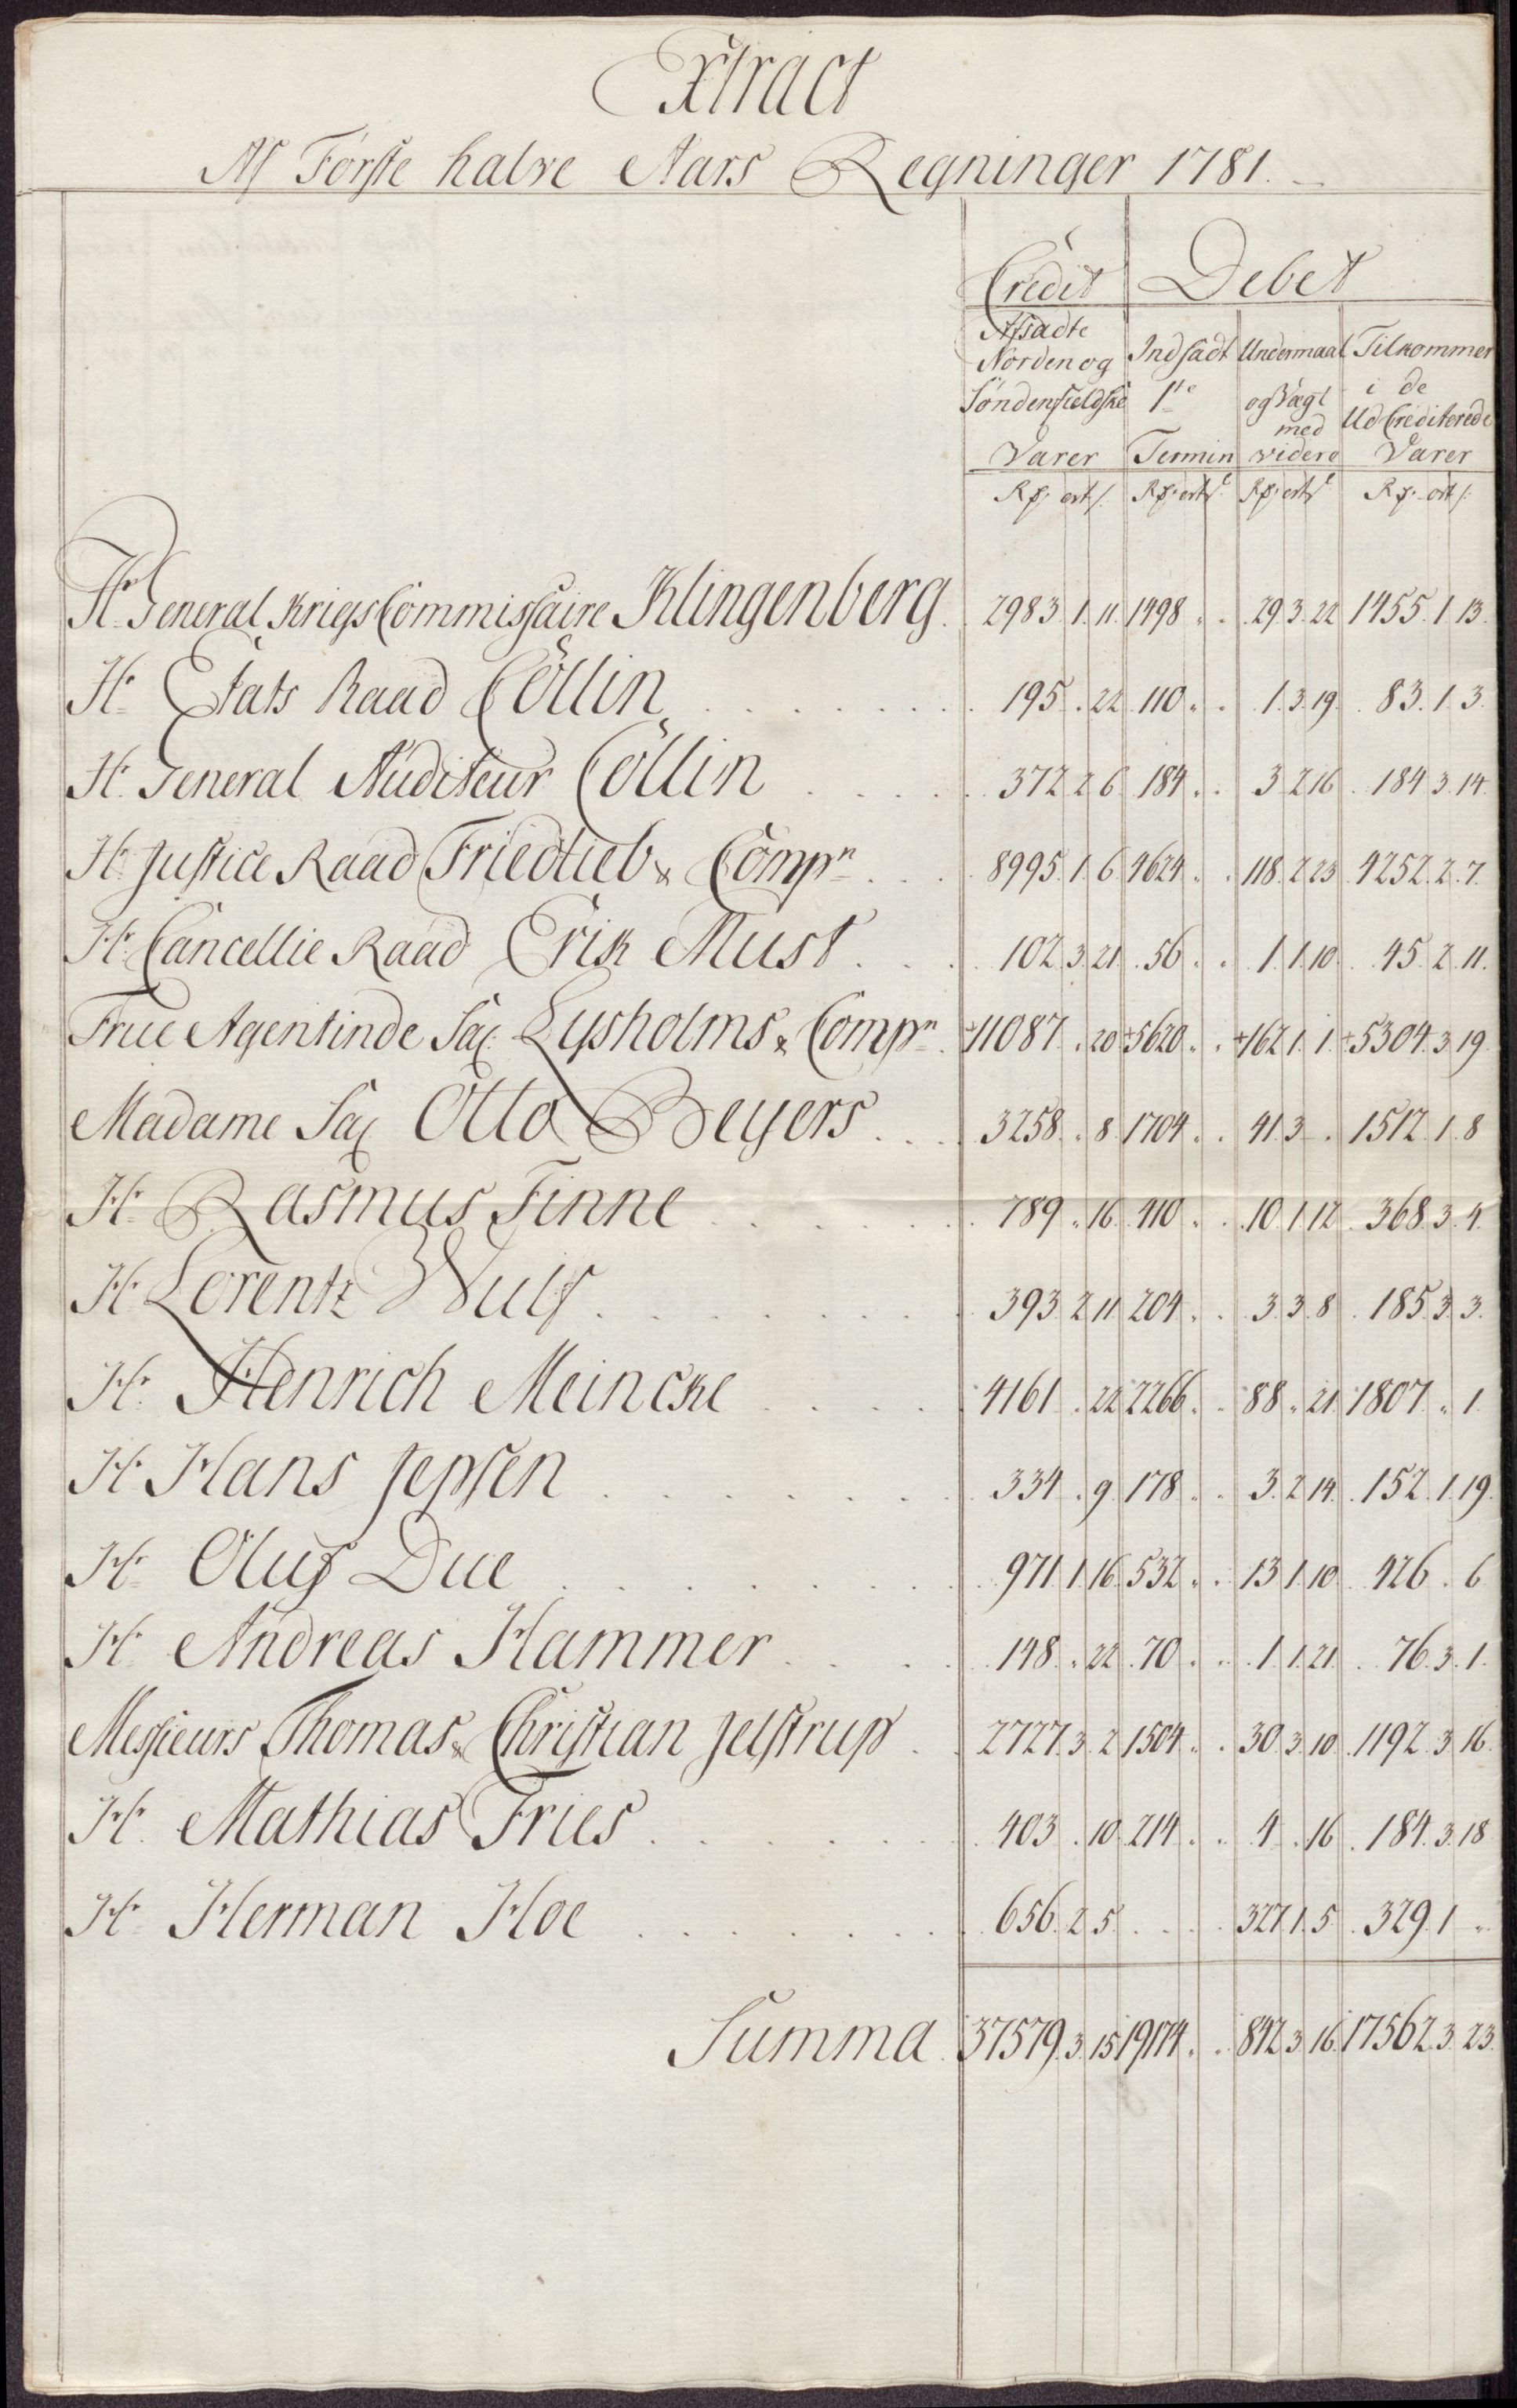 Extract
Af Förste halve Aars Regninger 1781.
Credit Debet
Afsadte Norden og Söndenfieldske Varer
Indsadt 1te Termin
Undermaal og Vægt med videre
Tilkommer i de Ud Crediterede Varer
Rf. ort s. Rf. ort s. Rf. ort s. Rf. ort s.
Hr General Krigs Commissaire Klingenberg. 2983. 1. 11. 1498 „ . 29. 3. 22 1455. 1. 13.
Hr Etats Raad Cöllin 195 . 22. 110 „ . 1. 3. 19. 83. 1. 3.
Hr General Auditeur Cöllin 372 2 6. 184 „ . 3 2 16. 184 3. 14.
Hr Justice Raad Friedlieb & Compn 8995. 1. 6. 4624 „ . 118. 2 23. 4252. 2. 7.
Hr Cancellie Raad Erik Must 102. 3. 21. 56 „ . 1. 1. 10. 45. 2. 11.
Frue Agentinde Sal: Lysholms & Compn 11087 . 20 5620 „ . 162 1. 1. 5304. 3. 19.
Madame Sal Otto Beyers 3258. „ 8. 1704 „ . 41. 3 . 1512. 1. 8
Hr Rasmus Finne 789 „ 16. 410 „ . 10. 1. 12. 368. 3. 4.
Hr Lorentz Wulf 393. 2. 11. 204 „ . 3. 3. 8. 185. 3. 3.
Hr Henrich Meincke 4161 . 22 2266 „ . 88 „ 21. 1807 „ 1.
Hr Hans Jepsen 334 . 9. 178 „ . 3. 2. 14. 152. 1. 19.
Hr Oluf Due 971. 1. 16. 532 „ . 13. 1. 10. 426 . 6
Hr Andreas Hammer 148. „ 22. 70 „ . 1. 1. 21. 76. 3. 1.
Messieurs Thomas & Christian Jelstrup 2727. 3. 2. 1504 „ . 30. 3. 10. 1192. 3. 16.
Hr Mathias Fries 403 . 10. 214 „ . 4 . 16. 184. 3. 18
Hr Herman Hoe 656. 2 5. . . 327. 1. 5. 329. 1 „
Summa 37579. 3. 15 19174 „ . 842 3 16. 17562. 3. 23.